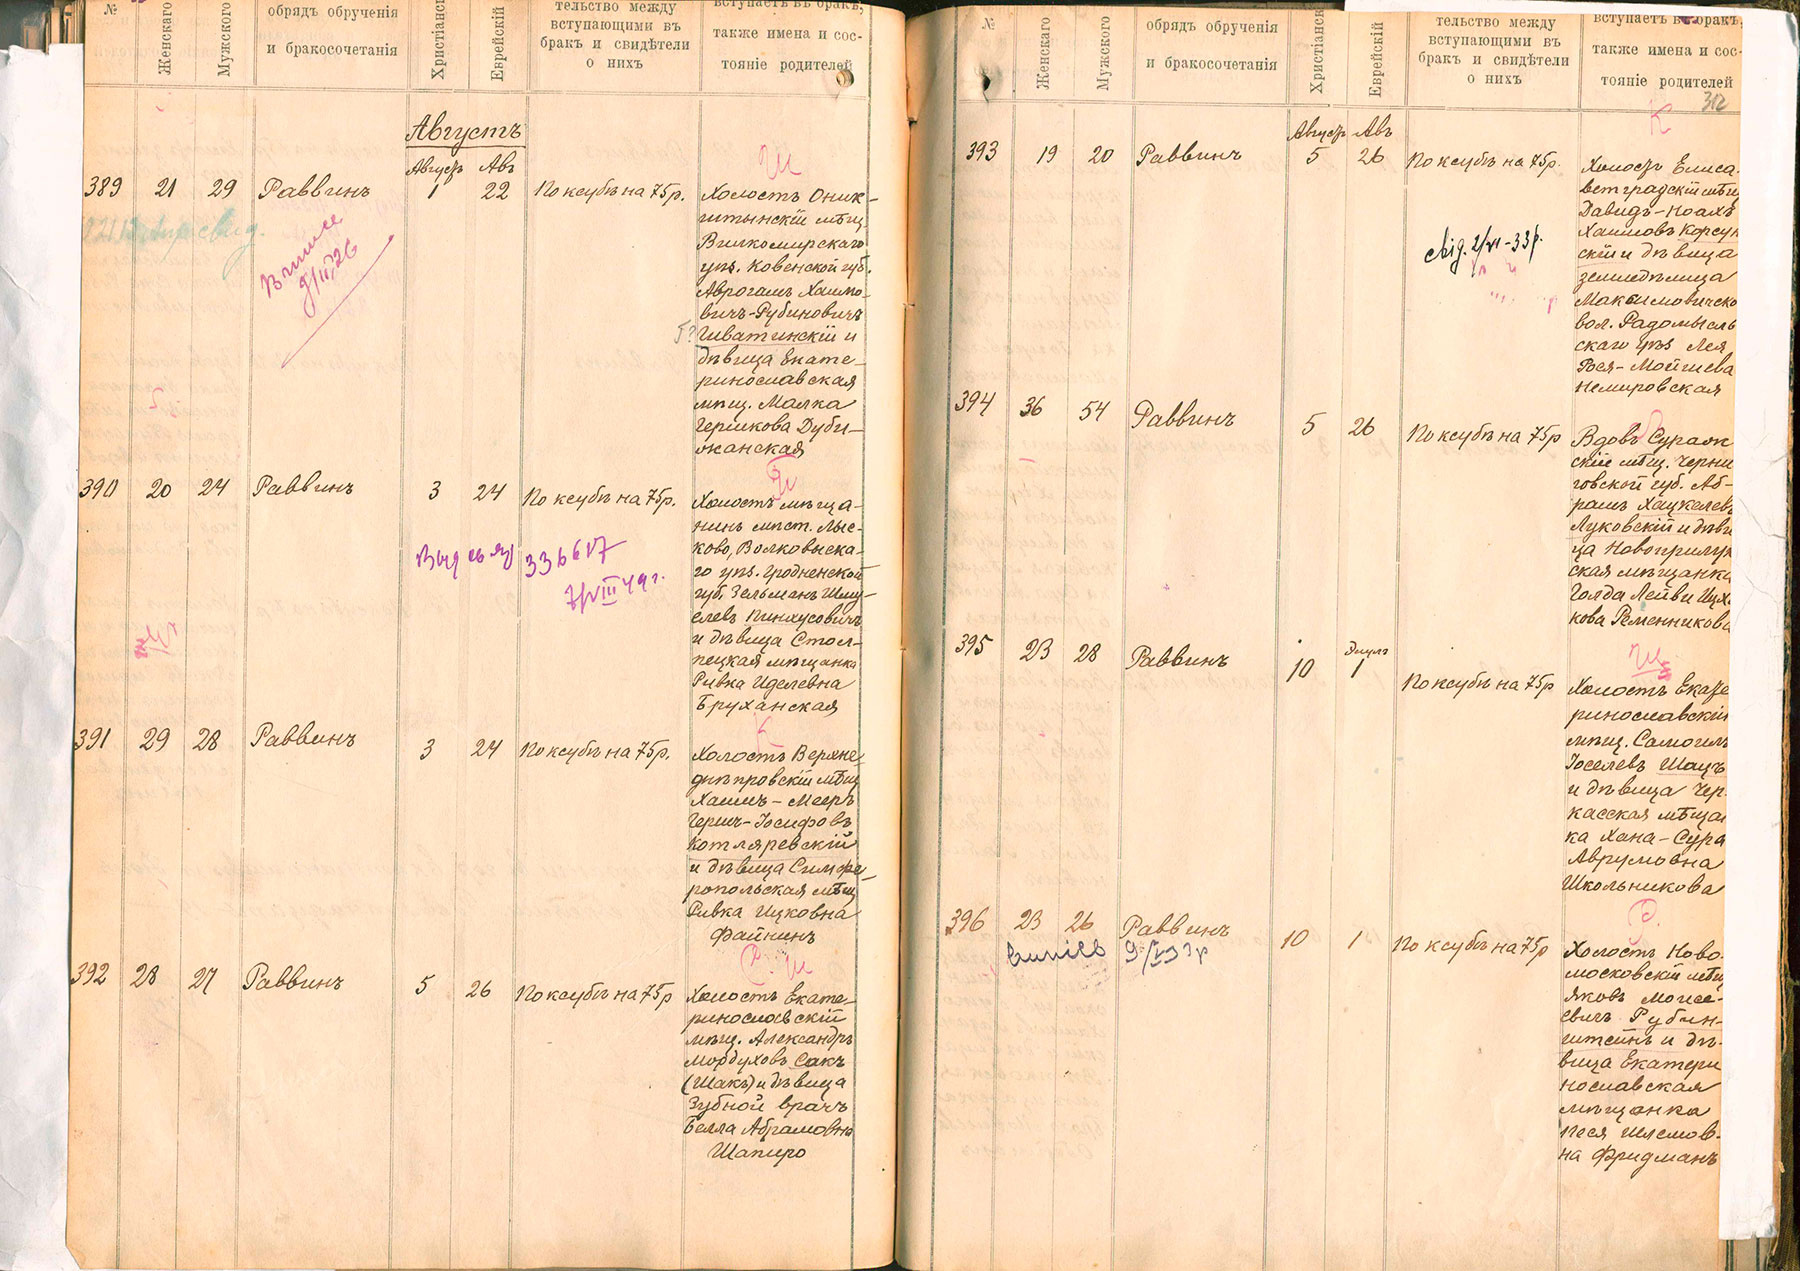 №
Женскаго
Мужского
обрядъ обрученія
и бракосочетанія
Христіанск
Еврейскій
тельство между
вступающими въ
бракъ и свидѣтели
о нихъ
вступаетъ въ бракъ,
также имена и сос-
тояніе родителей
Августъ
Августъ Авъ
389 21 29 Раввинъ 1 22 По ксубѣ на 75 р.
Холостъ Оник-
штынскій мѣщ.
Вилкомирскаго
уѣз. Ковенской губ.
Аврогамъ Хаимо-
вичъ-Рубиновичъ
Шватинскій и
дѣвица Екате-
ринославская
мѣщ. Малка
Гершкова Дуби-
жанская
390 20 24 Раввинъ 3 24 По ксубѣ на 75 р.
Холостъ мѣща-
нинъ мѣст. Лыс-
ково, Волковыска-
го уѣз. Гродненской
губ. Зельманъ Шму-
елевъ Пинхусовичъ
и дѣвица Стол-
пецкая мѣщанка
Ривка Иделевна
Бруханская
336617
391 29 28 Раввинъ 3 24 По ксубѣ на 75 р.
Холостъ Верхне-
днѣпровскій мѣщ
Хаимъ-Мееръ
Гершъ-Іосифовъ
Котляревскій
и дѣвица Симфе-
ропольская мѣщ
Ривка Ицковна
Файнинъ
392 28 27 Раввинъ 5 26 По ксубѣ на 75 р
Холостъ Екате-
ринославскій
мѣщ. Александръ
Мордуховъ Сакъ
(Шакъ) и дѣвица
Зубной врачъ
Белла Абрамовна
Шапиро
№
Женскаго
Мужского
обрядъ обрученія
и бракосочетанія
Христіанск
Еврейскій
тельство между
вступающими въ
бракъ и свидѣтели
о нихъ
вступаетъ въ бракъ,
также имена и сос-
тояніе родителей
312
Августъ Авъ
393 19 20 Раввинъ 5 26 По ксубѣ на 75 р.
Холостъ Елиса-
ветградскій мѣщ
Давидъ-Ноахъ
Хаимовъ Корсун
скій и дѣвица
земледѣлица
Максимовичско
вол. Радомысль
скаго уѣз Лея
Рося-Мойшева
Немировская
394 36 54 Раввинъ 5 26 По ксубѣ на 75 р
Вдовъ Сураж
скій мѣщ. Черни
говской губ. Аб-
рамъ Хацкелевъ
Луковскій и дѣви
ца Новоприлук
ская мѣщанка
Голда Лейви Ицх
кова Ременникова
395 23 28 Раввинъ 10 Элулъ 1 По ксубѣ на 75 р
Холостъ Екате
ринославскій
мѣщ. Самоилъ
Іоселевъ Шацъ
и дѣвица Чер-
касская мѣщан
ка Хана-Сура
Аврумовна
Школьникова
396 23 26 Раввинъ 10 1 По ксубѣ на 75 р
Холостъ Ново-
московскій мѣщ
Яковъ Моисе-
евичъ Рубин-
штейнъ и дѣ-
вица Екатери
нославская
мѣщанка
Песя Шлемов-
на Фридманъ